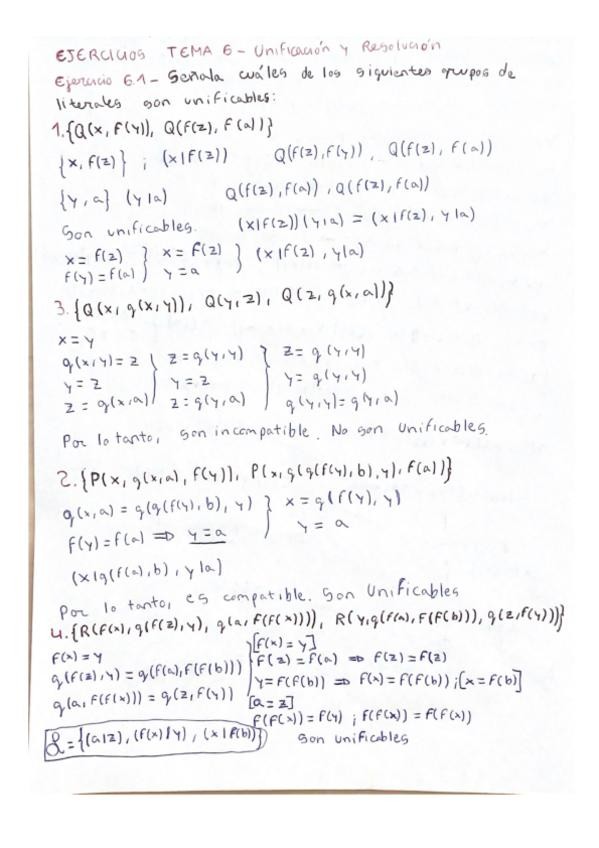 EJERCICIOS TEMA 6 - Unificación y Resolución
Ejercicio 6.1 - Señala cuáles de los siguientes grupos de
literales son unificables:
1. {Q(x, F(y)), Q(f(z), F(a))}
{x, f(z)} ; (x|f(z)) Q(f(z), f(y)), Q(f(z), f(a))
{y, a} (y|a) Q(f(z), f(a)), Q(f(z), f(a))
Son unificables. (x|f(z))(y|a) = (x|f(z), y|a)
x = f(z) } x = f(z) } (x|f(z), y|a)
f(y) = f(a) } y = a }
3. {Q(x, g(x,y)), Q(y,z), Q(z, g(x,a))}
x = y
g(x,y) = z } z = g(y,y) } z = g(y,y)
y = z } y = z } y = g(y,y)
z = g(x,a) } z = g(y,a) } g(y,y) = g(y,a)
Por lo tanto, son incompatible. No son unificables.
2. {P(x, g(x,a), f(y)), P(x, g(g(f(y), b), y), f(a))}
g(x,a) = g(g(f(y), b), y) } x = g(f(y), y)
f(y) = f(a) => y = a } y = a
(x|g(f(a), b), y|a)
Por lo tanto, es compatible. Son Unificables
4. {R(F(x), g(f(z), y), g(a, F(F(x)))), R(y, g(f(a), F(F(b))), g(z, f(y)))}
f(x) = y [f(x) = y]
g(f(z), y) = g(f(a), F(F(b))) } f(z) = f(a) => f(z) = f(z)
y = F(F(b)) => f(x) = F(F(b)) ; [x = F(b)]
g(a, F(F(x))) = g(z, F(y)) [a = z]
f(F(x)) = f(y) ; f(F(x)) = F(F(x))
L = {(a|z), (f(x)|y), (x|f(b))} Son unificables